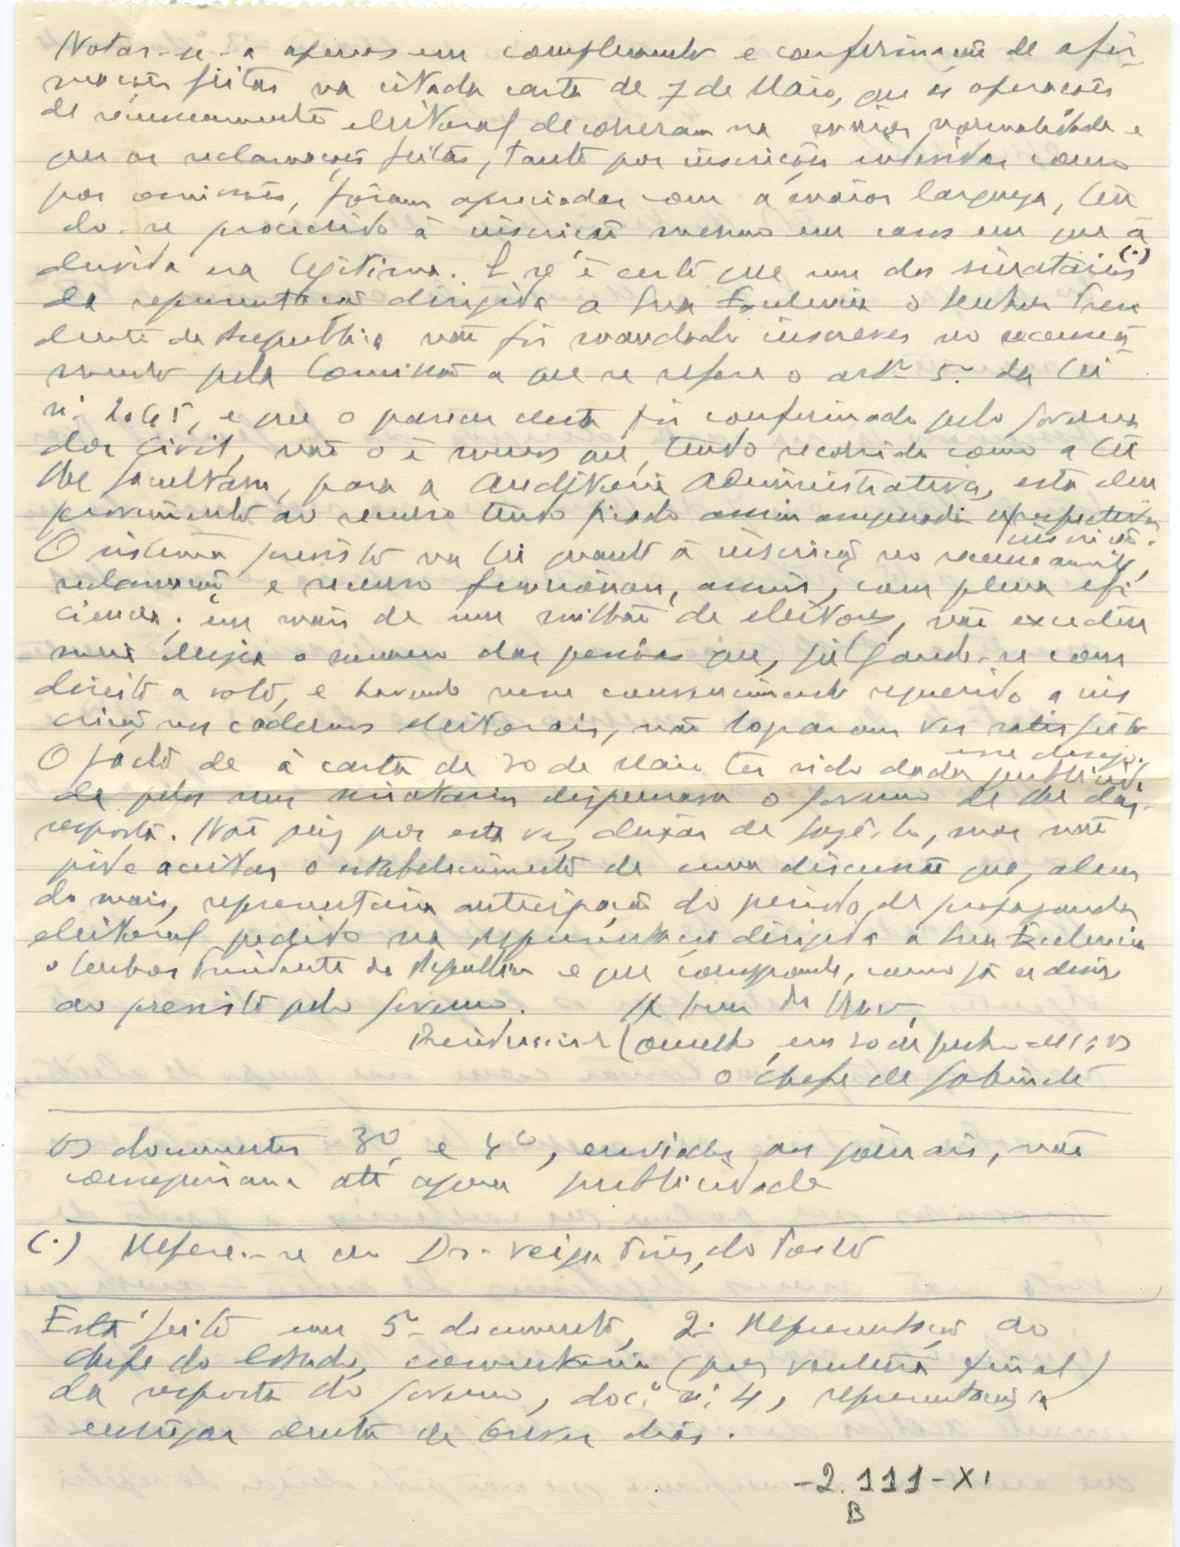 Notar-se-á apenas em complemento e confirmação de afir-
mações feitas na citada carta de 7 de Maio, que as operações
de recenseamento eleitoral decorreram na maior normalidade e
que as reclamações feitas, tanto por inscrições indevidas como
por omissões, foram apreciadas com a maior largueza, ten
do-se procedido à inscrição mesmo em casos em que a
duvida era legitima. E se é certo que um dos sinatários (.)
da representação dirigida a Sua Excelencia o Senhor Presi
dente da Republica não foi mandado inscrever no recensea
mento pela Comissão a que se refere o artº 5º da lei
nº 2015, e que o parecer desta foi confirmado pelo Governa
dor Civil, não o é menos que, tendo recorrido como a lei
lhe facultava, para a Auditoria Administrativa, esta deu
provimento ao recurso tendo ficado assim assegurada a respectiva
inscrição.
O sistema previsto na lei quanto à inscrição no recenseamento,
reclamação e recurso funcionou, assim, com plena efi
ciencia; em mais de um milhão de eleitores, não excedeu
meia duzia o numero das pessoas que, julgando-se com
direito a voto, e havendo nesse convencimento requerido a ins
crição nos cadernos eleitorais, não lograram ver satisfeito
esse desejo.
O facto de à carta de 20 de Maio ter sido dada publicida
de pelos seus sinatarios dispensava o Governo de lhe dar
resposta. Não quis por esta vez deixar de fazê-lo, mas não
pode aceitar o estabelecimento de uma discussão que, alem
do mais, representaria antecipação do periodo de propaganda
eleitoral pedido na representação dirigida a Sua Excelencia
o Senhor Presidente da Republica e que corresponde, como já se disse
ao previsto pelo Governo. A bem da Nação,
Presidencia do Conselho, em 20 de Junho de 1953
O chefe de Gabinete
Os documentos 3º e 4º, enviados aos jornais, não
conseguiram até agora publicidade
(.) Refere-se ao Dr. Veiga Pires, do Porto
Está feito um 5º documento, 2ª Representação ao
chefe do Estado, comentario (por ventura final)
da resposta do Governo, doc.º nº 4, representação a
entregar dentro de breves dias.
-2.111-XI
B